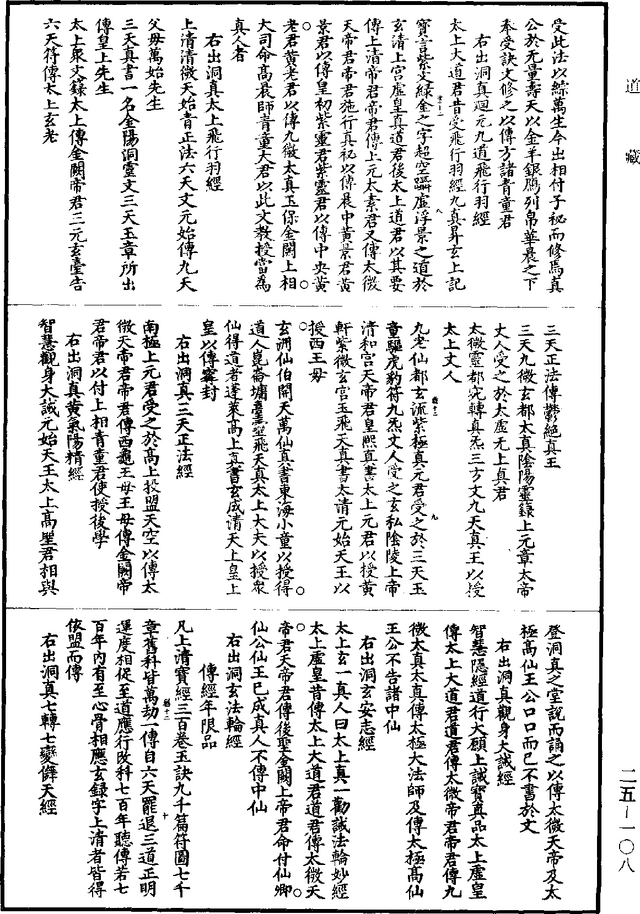 道藏
受此法以綜萬生今出相付子秘而修焉真
公於无量壽天以金羊銀鴈列帛華晨之下
奉受訣文修之以傳方諸青童君
右出洞真迴元九道飛行羽經
太上大道君昔受飛行羽經九真昇玄上記
寶言紫文綠金之字超空躡虛浮景之道於
玄清上宮虛皇真道君後太上道君以其要
傳上清帝君帝君傳上元太素君又傳太微
天帝君帝君施行真秘以傳晨中黃景君黃
景君以傳皇初紫靈君紫靈君以傳中央黃
老君黃老君以傳九微太真玉保金闕上相
大司命高晨師青童大君以此文教授當為
真人者
右出洞真太上飛行羽經
上清清微天始青正法六天文元始傳九天
父母萬始先生
三天真書一名金陽洞靈文三天玉章所出
傳皇上先生
太上衆文籙太上傳金闕帝君三元玄臺告
六天符傳太上玄老
三天正法傳鬱絕真王
三天九微玄都太真陰陽靈籙上元章太帝
丈人受之於太虛无上真君
太微靈都宛轉真炁三方文九天真王以授
太上丈人
九老仙都玄流紫極真元君受之於三天玉
童驅虎豹符九炁丈人受之玄私陰陵上帝
清和宮天帝君皇熙真書太上元君以授黃
軒紫微玄宮玉飛天真書太清元始天王以
授西王母
玄洲仙伯開天萬仙真書東海小童以授得
道人崑崙墉臺靈飛天真太上大夫以授衆
仙得道者蓬萊高上真書玄成清天上皇上
皇以傳甯封
右出洞真三天正法經
南極上元君受之於高上投盟天空以傳太
微天帝君帝君傳西龜王母王母傳金闕帝
君帝君以付上相青童君使授後學
右出洞真黃氣陽精經
智慧觀身大誡元始天王太上高聖君相與
登洞真之堂說而誦之以傳太微天帝及太
極高仙王公口口而已不書於文
右出洞真觀身大誡經
智慧隱經道行大願上誡寶真品太上虛皇
傳太上大道君道君傳太微帝君帝君傳九
微太真太真傳太極大法師及傳太極高仙
王公不告諸中仙
右出洞玄安志經
太上玄一真人曰太上真一勸誡法輪妙經
太上虛皇昔傳太上大道君道君傳太微天
帝君天帝君傳後聖金闕上帝君命付仙卿
仙公仙王已成真人不傳中仙
右出洞玄法輪經
傳經年限品
凡上清寶經三百卷玉訣九千篇符圖七千
章舊科皆萬劫一傳自六天罷退三道正明
運度相促至道應行改科七百年聽傳若七
百年內有至心骨相應玄錄字上清者皆得
依盟而傳
右出洞真七轉七變儛天經
二五－一〇八